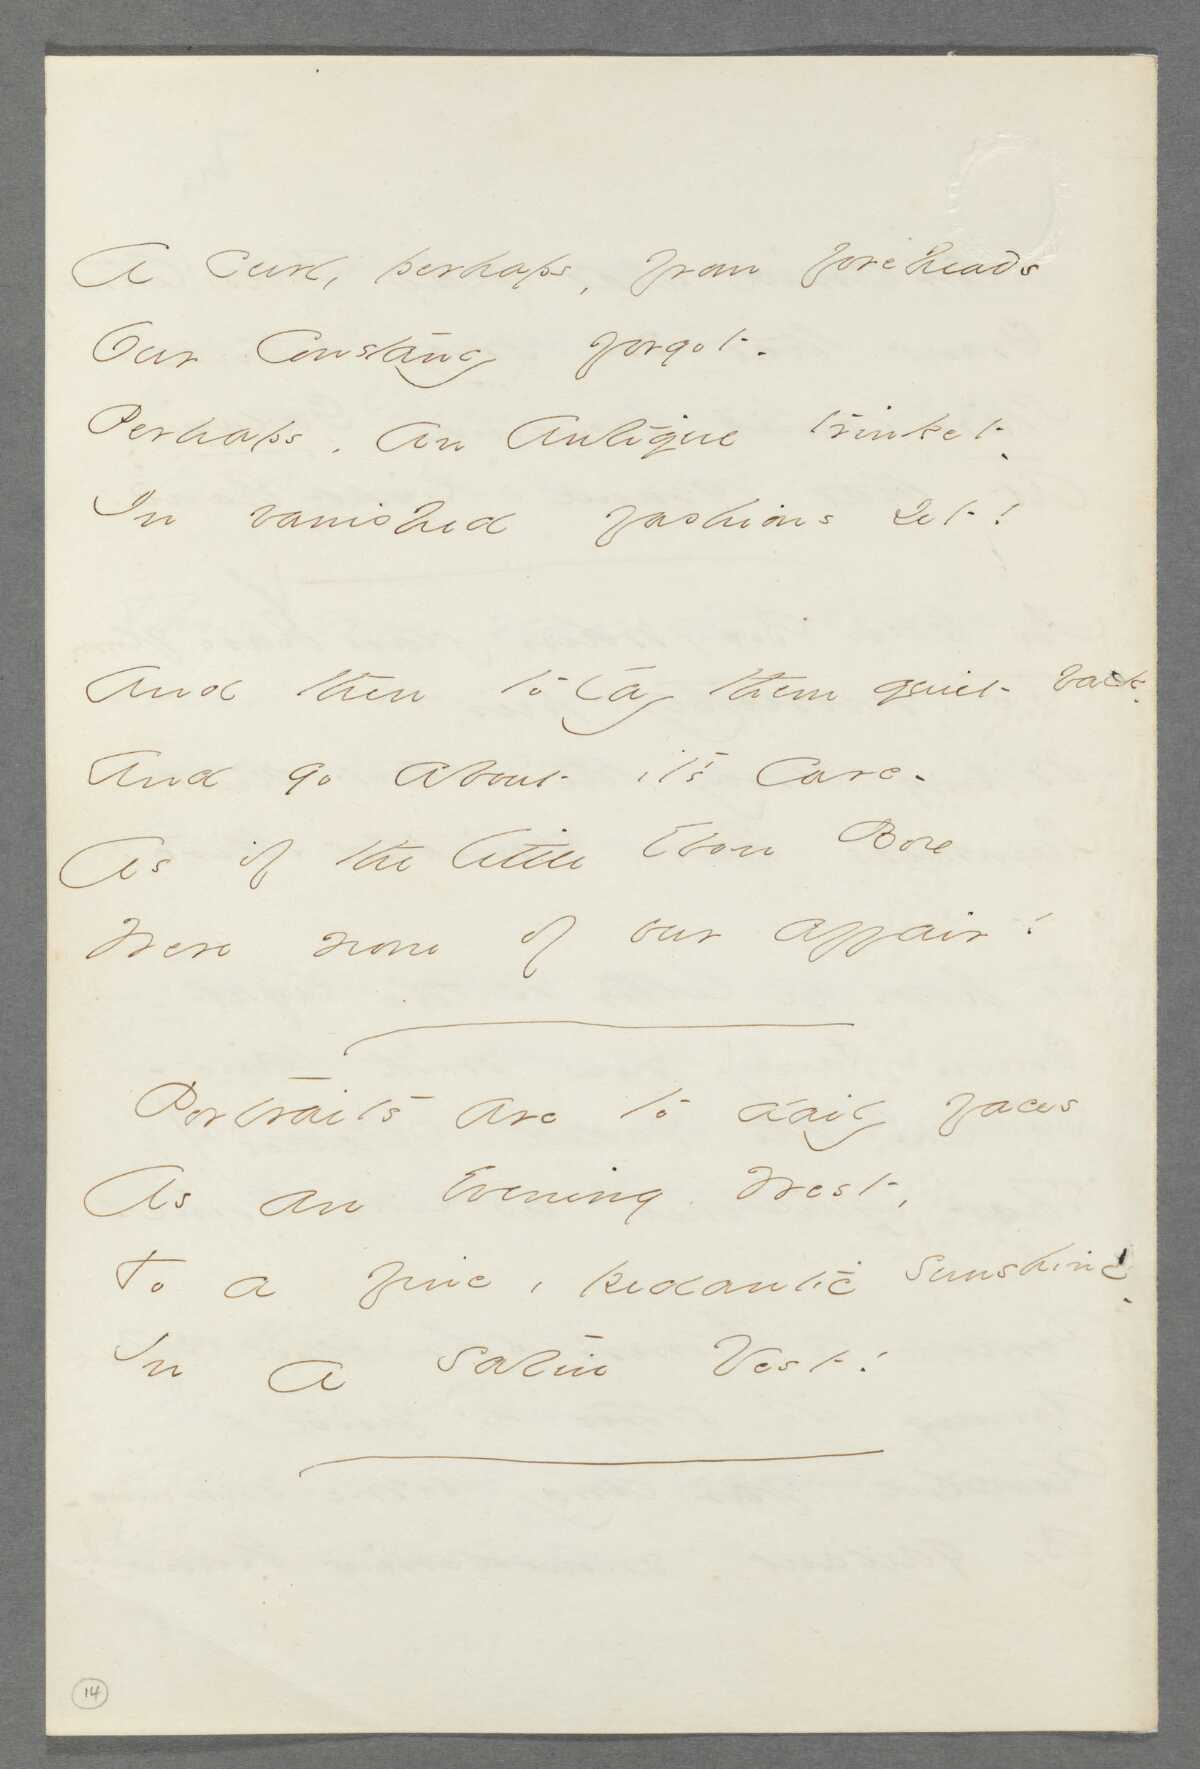 A Curl, perhaps, from foreheads
Our Constancy forgot -
Perhaps, an antique trinket -
In vanished fashions set!
And then to lay them quiet back -
And go about it's care -
As if the little Ebon Box
Were none of our affair!
Portraits are to daily faces
As an Evening West,
To a fine, pedantic sunshine -
In a satin Vest!
14